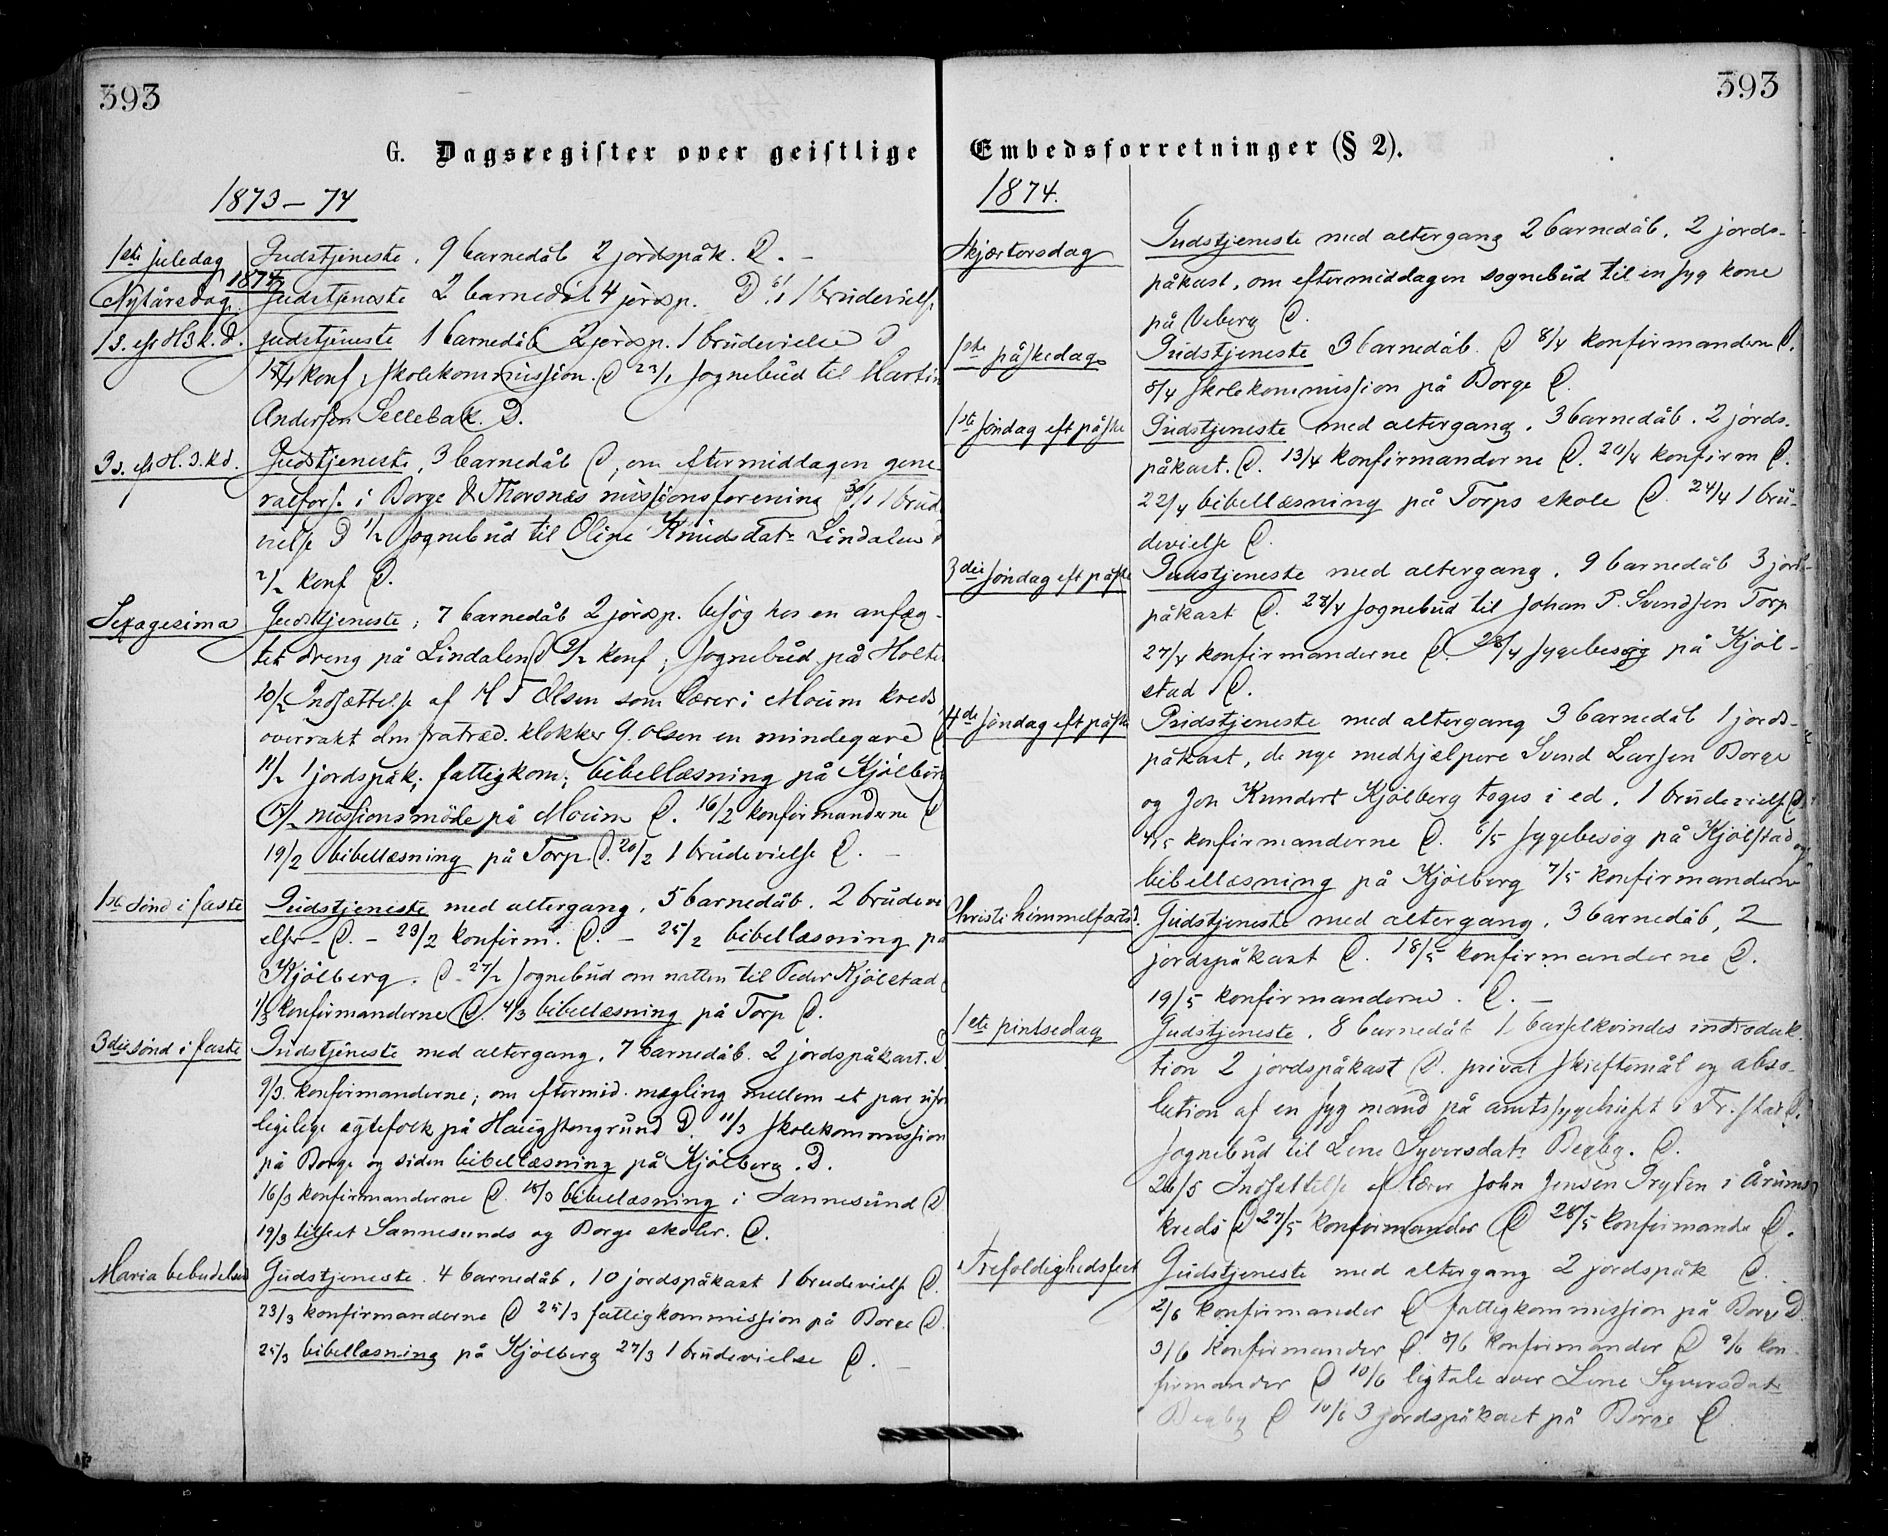 393
G. Dagsregister over geistlige
1873 – 74
1ste juledag Gudstjeneste, 9 barnedåb 2 jordspåk. D. –
1874
Nytårsdag. Gudstjeneste 2 barnedåb 4 jordsp. D. 6/1 1 brudevielse
1 s. eft H3k.D. gudstjeneste 1 barnedåb 2 jordsp. 1 brudevielse D
15/1 konf, skolekommission. D 23/1 sognebud til Martin
Andersen Sellebak. D.
3 s. eft H.3.kd. Gudstjeneste, 3 barnedåb D, om eftermiddagen gene-
ralfors. i Borge & Thorsnæs missionsforening 1 brude
vielse D 1/2 sognebud til Oline Knudsdatr Lindalen D
2/2 konf D.
Sexagesima Gudstjeneste, 7 barnedåb 2 jordsp. besøg hos en anfæg-
tet dreng på Lindalen D 9/2 konf; sognebud på Holte
10/2 Indsættelse af H T Olsen som lærer i Moum kreds,
overrakt den fratræd. klokker G. Olsen en mindegave D
11/2 1 jordspåk; fattigkom; bibellæsning på Kjølberg
15/2 missionsmöde på Moum D. 16/2 konfirmanderne D
19/2 bibellæsning på Torp D. 20/2 1 brudevielse D. –
1ste sönd i faste Gudstjeneste med altergang, 5 barnedåb. 2 brudevi
elser – D. – 23/2 konfirm. D. – 25/2 bibellæsning på
Kjölberg. D – 27/2 sognebud om natten til Peder Kjölstad
1/3 konfirmanderne D. 4/3 bibellæsning på Torp D.
3die sönd i faste Gudstjeneste med altergang, 7 barnedåb. 2 jordspåkast. D.
9/3. konfirmanderne; om eftermid. mægling mellem et par ufor
ligelige ægtefolk på Haugstengrund D. 11/3 skolekommission
på Borge og siden bibellæsning på Kjölberg. D.
16/3 konfirmanderne D. 18/3 bibellæsning i Sannesund D
19/3 tilseet Sannesunds og Borge skoler. D.
Maria bebudelse Gudstjeneste. 4 barnedåb, 10 jordspåkast 1 brudevielse D.
23/3 konfirmanderne D 25/3 fattigkommission på Borge D.
25/3 bibellæsning på Kjölberg 27/3 1 brudevielse D. –
393
Embedsforretninger (§ 2).
1874.
Skjærtorsdag Gudstjeneste med altergang 2 barnedåb. 2 jords-
påkast, om eftermiddagen sognebud til en syg kone
på Veberg D.
1ste påskedag Gudstjeneste 3 barnedåb. D 8/4 konfirmanderne D.
8/4 skolekommission på Borge D.
1ste söndag eft påske Gudstjeneste med altergang. 3 barnedåb. 2 jords-
påkast. D. 13/4 konfirmanderne D. 20/4 konfirm D.
22/4 bibellæsning på Torps skole D. 24/4 1 bru-
devielse D.
3die söndag eft påske Gudstjeneste med altergang. 9 barnedåb 3 jords-
påkast D. 27/4 sognebud til Johan P. Svendsen Torp
27/4 konfirmanderne D. 28/4 sygebesøg på Kjøl-
stad D.
4de söndag eft påske Gudstjeneste med altergang 3 barnedåb 1 jords-
påkast, de nye medhjælpere Svend Larsen Borge
og Joh Kundert Kjølberg toges i ed. 1 brudevielse D.
4/5 konfirmanderne D. 6/5 sygebesøg på Kjölstad og
bibellæsning på Kjölberg 7/5 konfirmanderne
Christi himmelfartsd. Gudstjeneste med altergang, 3 barnedåb, 2
jordspåkast D. 18/5 konfirmanderne D.
19/5 konfirmanderne. D. –
1ste pintsedag Gudstjeneste. 8 barnedåb 1 barselkvindes introduk-
tion 2 jordspåkast D. privat skriftemål og abso-
lution af en syg mand på amtssygehuset i Fr.stad D.
sognebud til Lene Syversdatr Begby. D.
26/5 Indsættelse af lærer John Jensen Gryten i Årums
kreds D 27/5 konfirmander D 28/5 konfirmander D.
Trefoldighedsfest Gudstjeneste med altergang 2 jordspåk D.
2/6 konfirmander D fattigkommission på Borge D.
3/6 konfirmander D. 8/6 konfirmander D 9/6 kon-
firmander D 10/6 ligtale over Lene Syversdatr
Begby D 10/6 3 jordspåkast på Borge D.